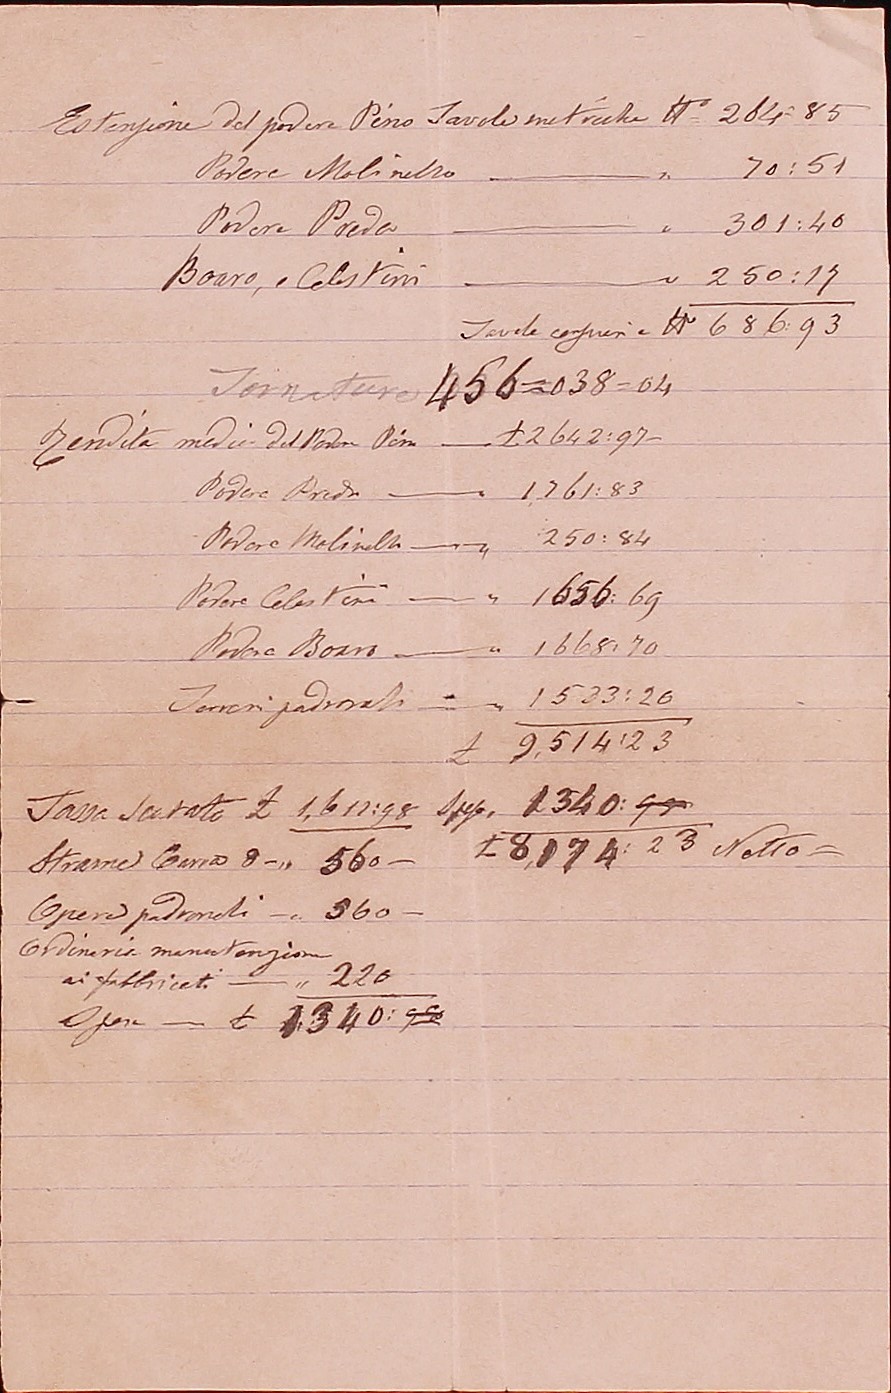 Estensione del podere Pino Tavole metriche N° 264=85
Podere Molinello — " 70:51
Podere Preda — " 301:40
Boaro, e Celestini — " 250:17
Tavole censuarie N° 686:93
Tornature 456=038=04
Rendita media del Podere Pino — £ 2642:97
Podere Preda — " 1761:83
Podere Molinello — " 250:84
Podere Celestini — " 1656:69
Podere Boaro — " 1668:70
Terreni padronali — " 1533:20
£ 9,514:23
£ 1,617:98 Spese 1340:
£ 8,174:23 Netto =
Strame Carra 8 — " 560 —
Opere padronali — " 560 —
Ordinaria manutenzione
ai fabbricati — " 220
Spese — £ 1340: